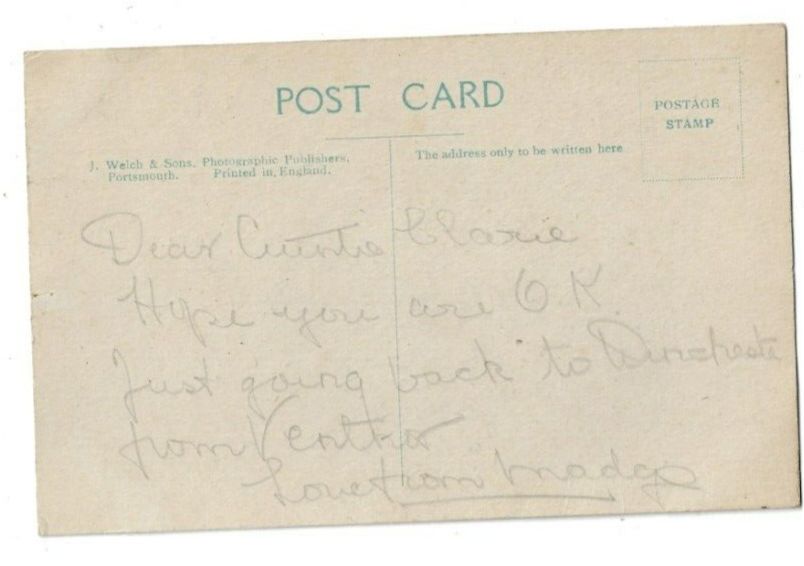 POST CARD
POSTAGE
STAMP
J. Welch & Sons, Photographic Publishers,
Portsmouth. Printed in England.
The address only to be written here
Dear Auntie Clarie
Hope you are O.K.
Just going back to
from Ventnor
Love from Madge